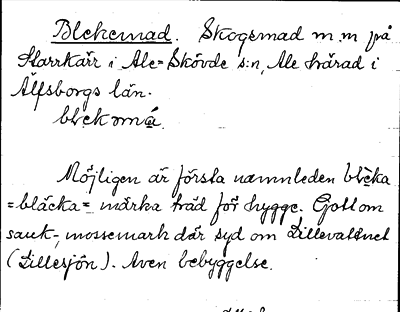 Blekemad. Skogsmad m.m på
Starrkärr i Ale-Skövde s:n, Ale härad i
Älfsborgs län.
blekomá.
Möjligen är första namnleden bleka
=bläcka= märka träd för hygge. Gott om
sank-, mossemark där syd om Lillevattnet
(Lillesjön). Även bebyggelse.